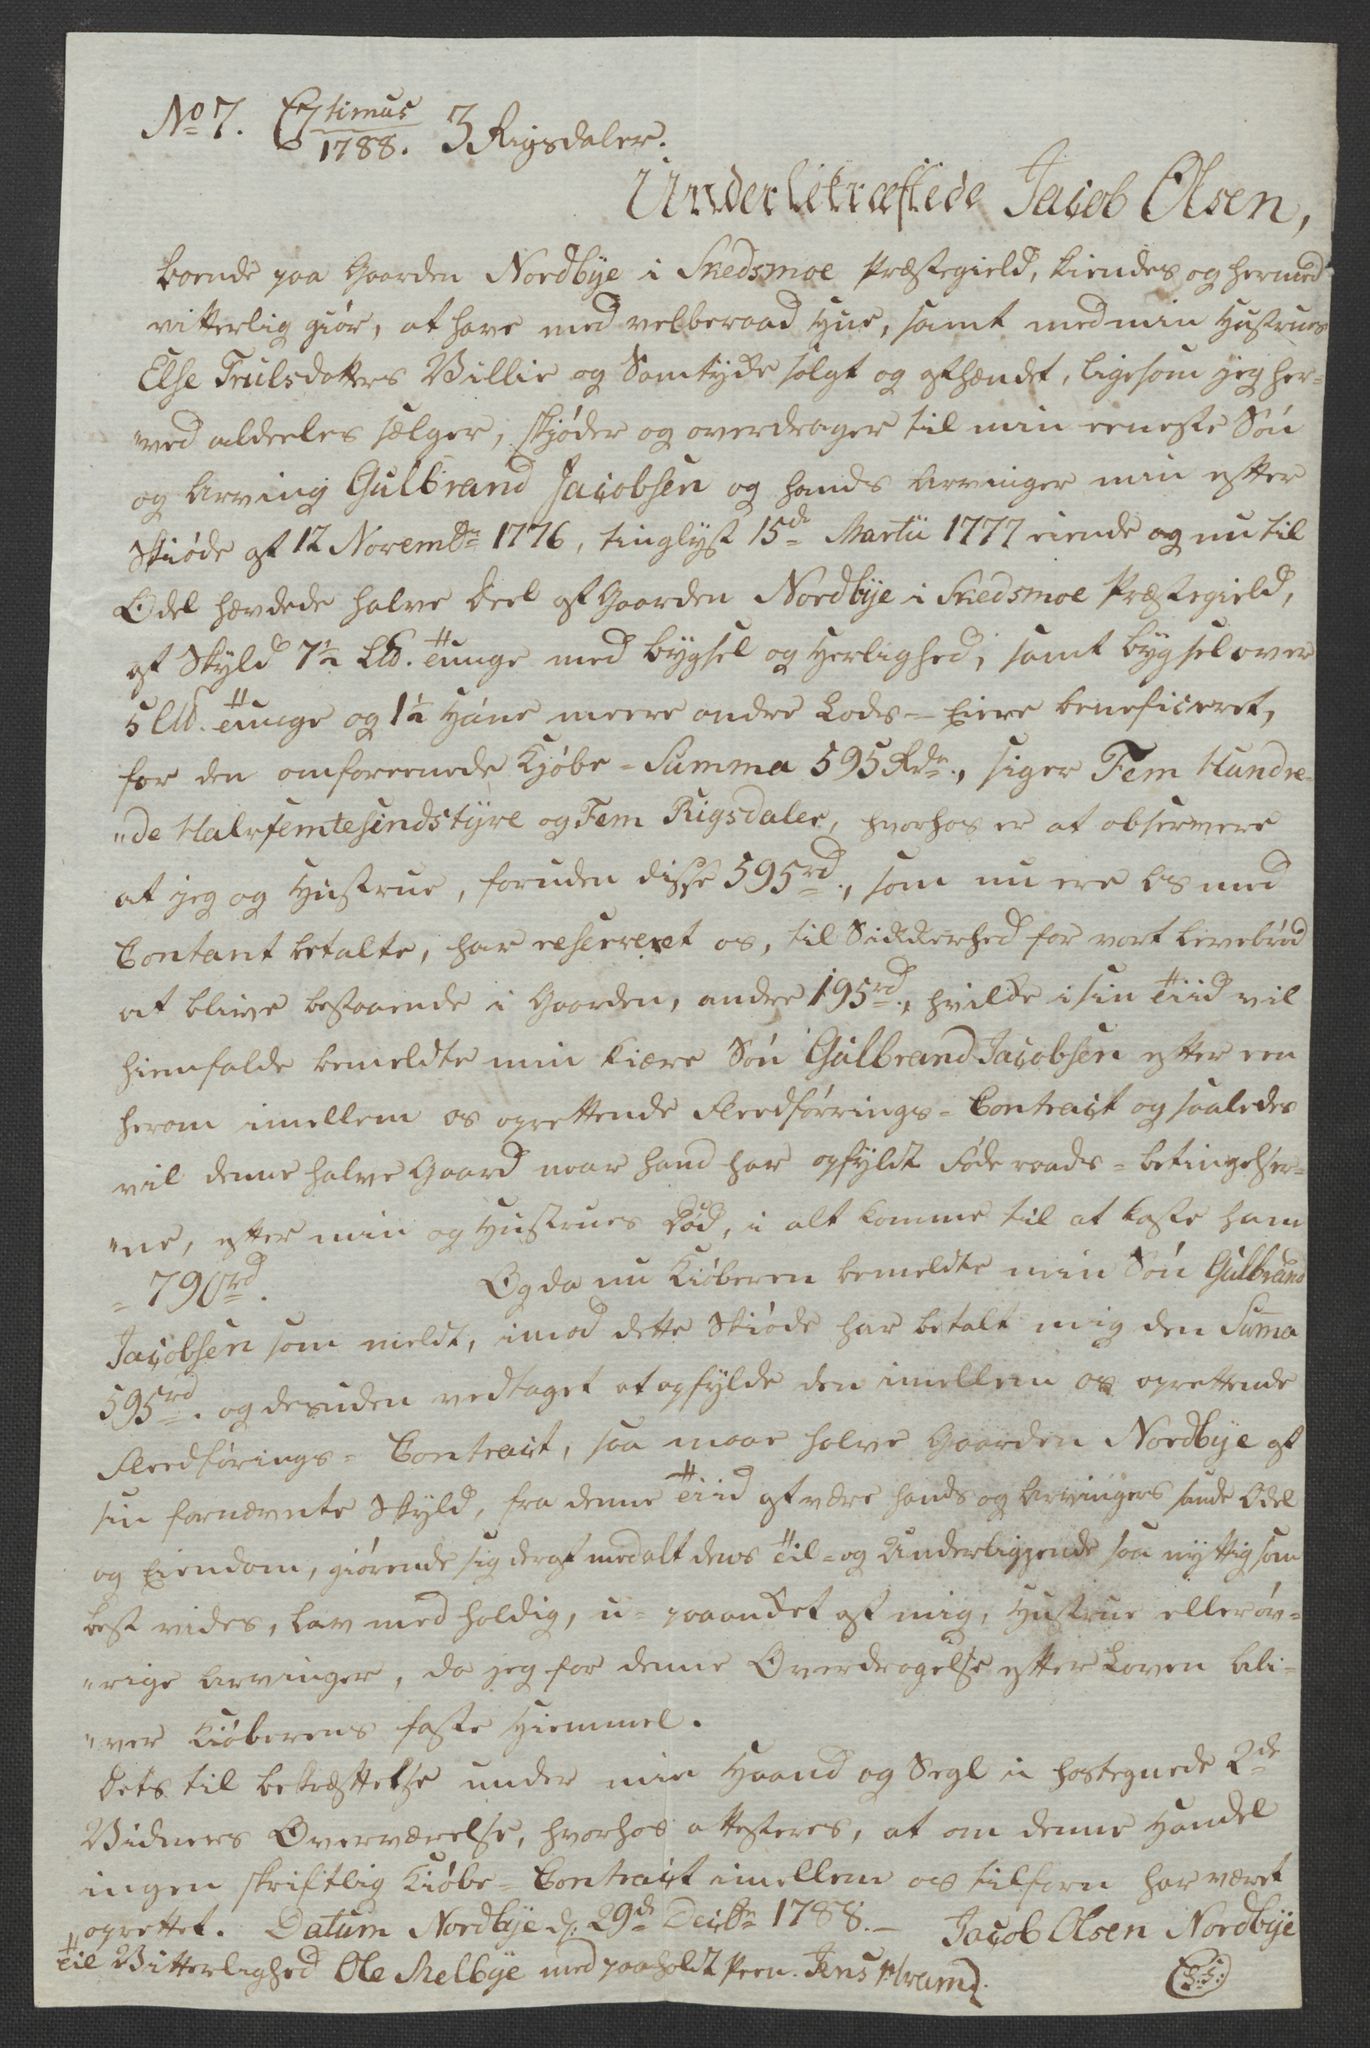 No 7. C7timus 1788. 3 Rigsdaler.
Underbekræftede Jacob Olsen,
boende paa Gaarden Nordbÿe i Skedsmoe Præstegield, kiendes og hermed
vitterlig giør, at have med velberaad Hue, samt med min Hustrues
Else Trulsdatters Villie og Samtÿkke solgt og afhændet, ligesom jeg her-
"ved aldeeles sælger, skjøder og overdrager til min eeneste Søn
og Arving Gulbrand Jacobsen og hands Arvinger min efter
Skiøde af 12 Novembr 1776, tinglyst 15de Martii 1777 eiende og nu til
Odel hævdede halve Deel af Gaarden Nordbÿe i Skedsmoe Præstegield,
af Skÿld 7½ L℔. Tunge med bÿgsel og Herlighed, samt bÿgsel over
5 L℔. Tunge og 1½ meere andre Lods-Eiere beneficeret,
for den omforeenede Kjøbe-Summa 595 Rdr., siger Fem Hundre-
"de Halvfemtesindstÿve og Fem Rigsdaler, hvorhos er at observere
at jeg og Hustrue, foruden disse 595rd., som nu ere os med
Contant betalte, har reserveret os, til Sikkerhed for vort Levebrød
at blive bestaaende i Gaarden, andre 195rd., hvilke i sin Tiid vil
hiemfalde bemeldte min kiære Søn Gulbrand Jacobsen efter een
herom imellem os oprettende Fledførings-Contract og saaledes
vil denne halve Gaard naar hand har opfÿldt Føderaads-betingelser-
"ne, efter min og Hustrues Død, i alt komme til at koste ham
= 790rd. Og da nu Kiøberen bemeldte min Søn Gulbrand
Jacobsen som meldt, imod dette Skiøde har betalt mig den Suma
595rd. og desuden vedtaget at opfÿlde den imellem os oprettende
Fledførings-Contract, saa maae halve Gaarden Nordbÿe af
sin fornævnte Skÿld, fra denne Tiid af være hands og Arvingers sande Odel
og Eiendom, giørende sig deraf med alt dens Til- og Underliggende saa nyttig som
best vides, Lav medholdig, u-paaanket af mig, Hustrue eller øv-
"rige Arvinger, da jeg for denne Overdragelse efter Loven bli-
"ver Kiøberens faste Hiemmel.
Dets til bekræftelse under min Haand og Segl i hostegnede 2de
Vidners Overværelse, hvorhos attesteres, at om denne Handel
ingen skriftlig Kiøbe-Contract imellem os tilforn har været
oprettet. Datum Nordbÿe d. 29de Decbr 1788. — Jacob Olsen Nordbÿe
Til Vitterlighed Ole Melbÿe med paaholdt Peen. Jens (L.S.)